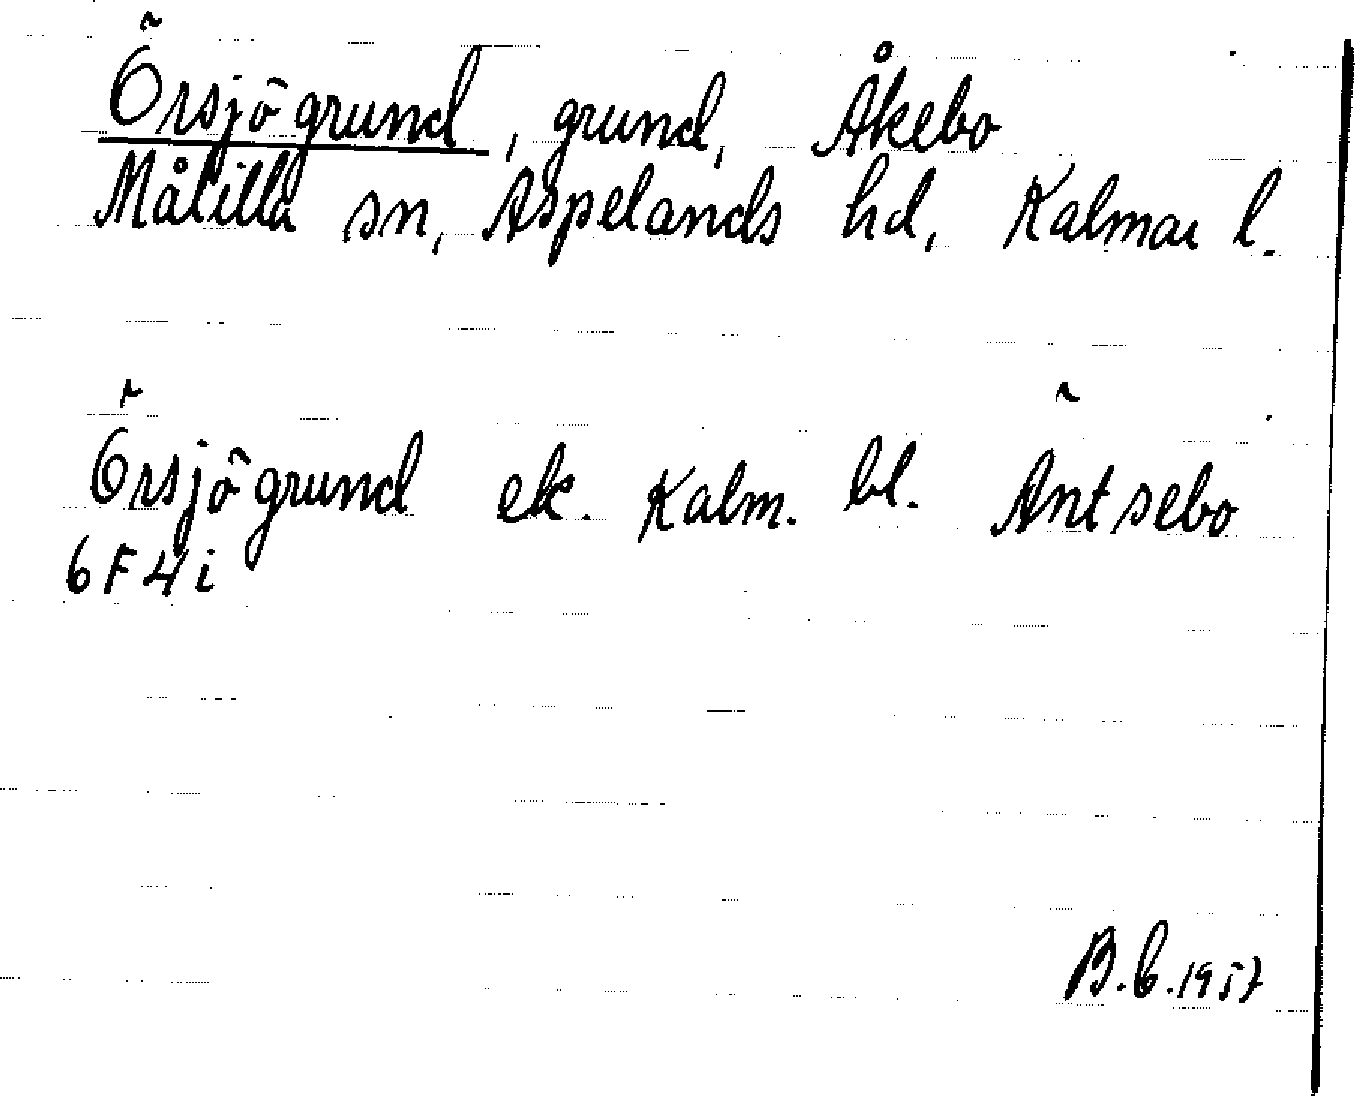 Örsjögrund, grund, Åkebo
Målilla sn, Aspelands hd, Kalmar l.
Örsjögrund ek. Kalm. bl. Äntsebo
6F4i
B.G.1957